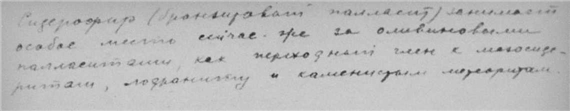 Сидерофир (бронзитовый палласит) занимает
особое место сейчас же за оливиновыми
палласитами, как переходный член к мезосиде-
ритам, лодраниту и каменистым метеоритам.